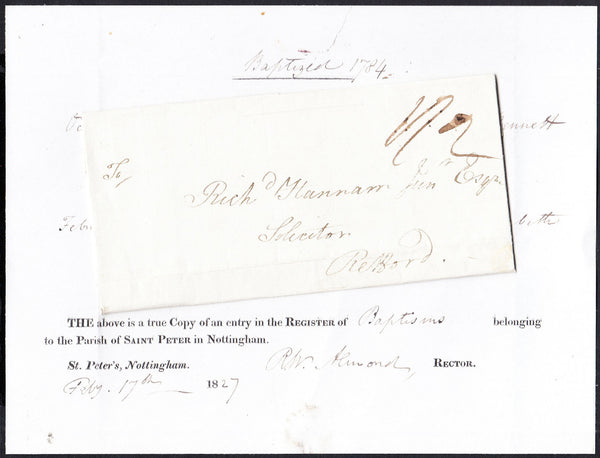 Baptized 1784.
To
Rich.d Hannam Jun.r Esq.
Solicitor
Retford.
THE above is a true Copy of an entry in the REGISTER of Baptisms belonging
to the Parish of SAINT PETER in Nottingham.
St. Peter's, Nottingham. R.W. Almond, RECTOR.
Feby. 17th 1827